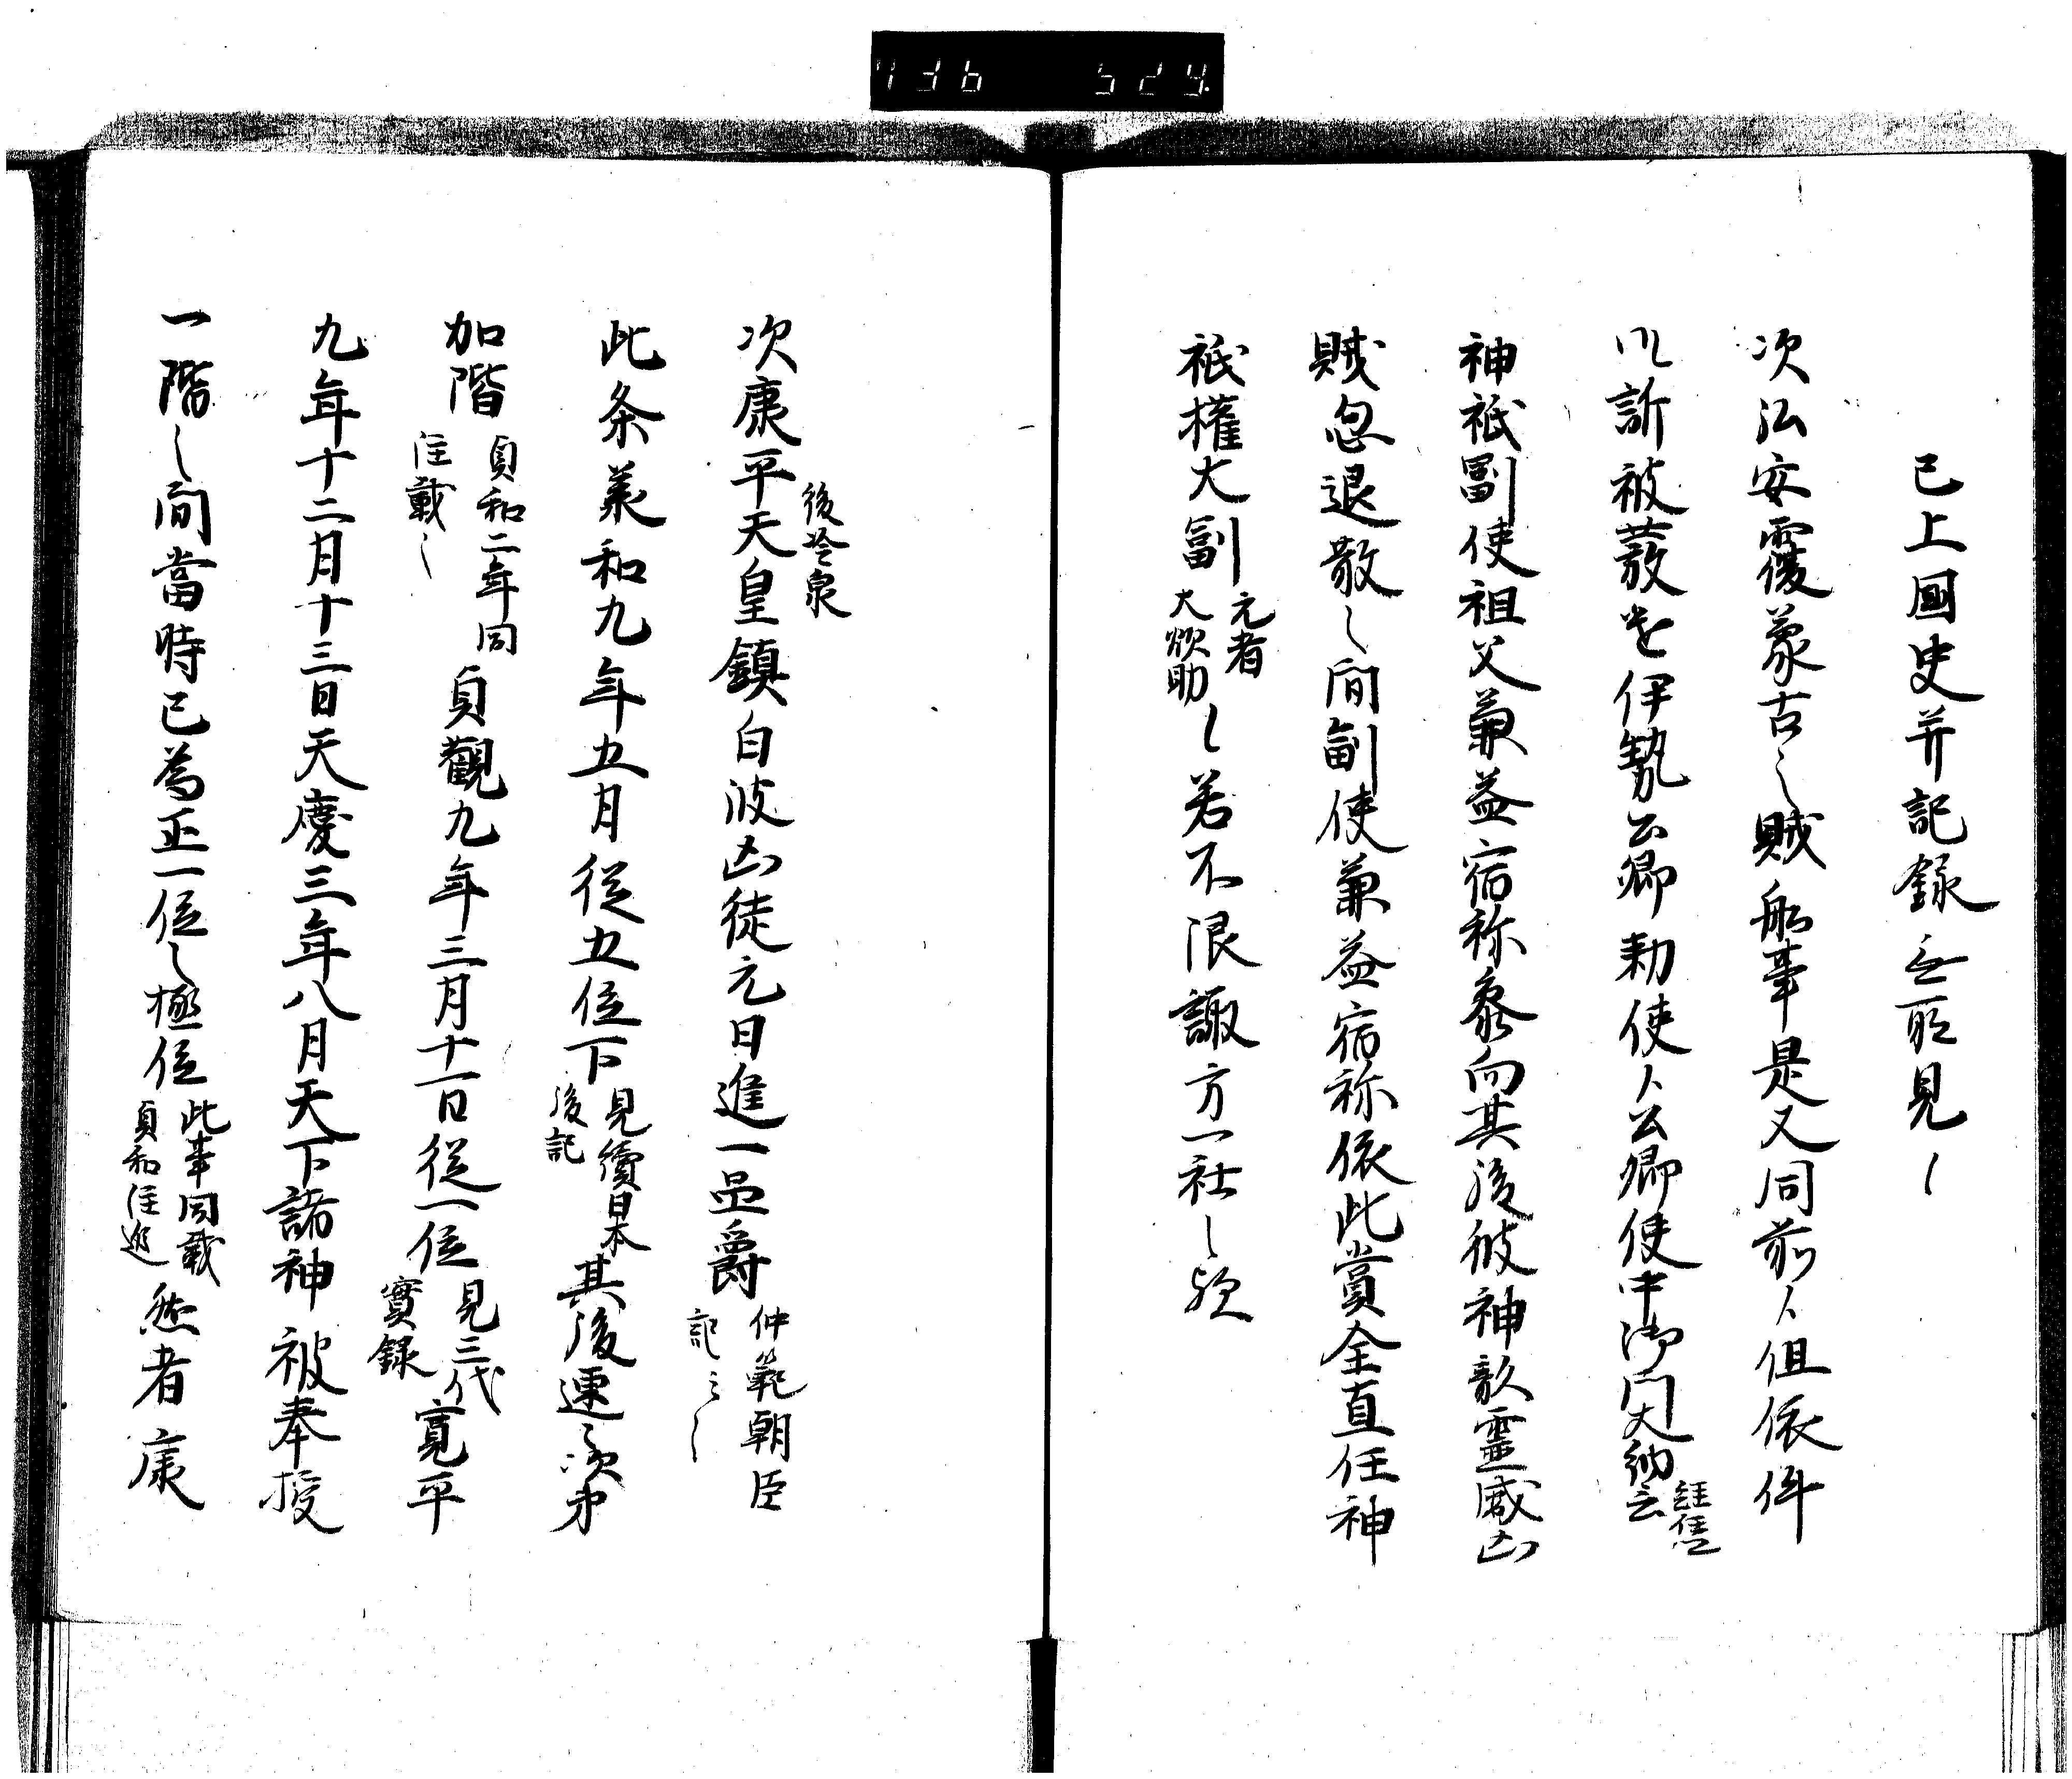 已上國史并記録無所見之
次弘安覆蒙古之賊船事是又同前々但依件
御祈被發遣伊勢公卿勅使々公卿使中御門大納言経任
神祇副使祖父兼益宿祢参向其後彼神霊威凶
賊忽退散之間副使兼益宿祢依此賞全直任神
祇權大副元者大炊助之若不限諏方一社之歟
次康平天皇後冷泉鎮白波凶徒元日進一品爵仲範朝臣記之
此条義和九年五月従五位下見續日本後記其後連々次第
加階貞和二年同注載之貞觀九年三月十一日従一位見三代實録寛平
九年十二月十三日天慶三年八月天下諸神被奉授
一階之間當時已為正一位之極位此事同載貞和注進然者康